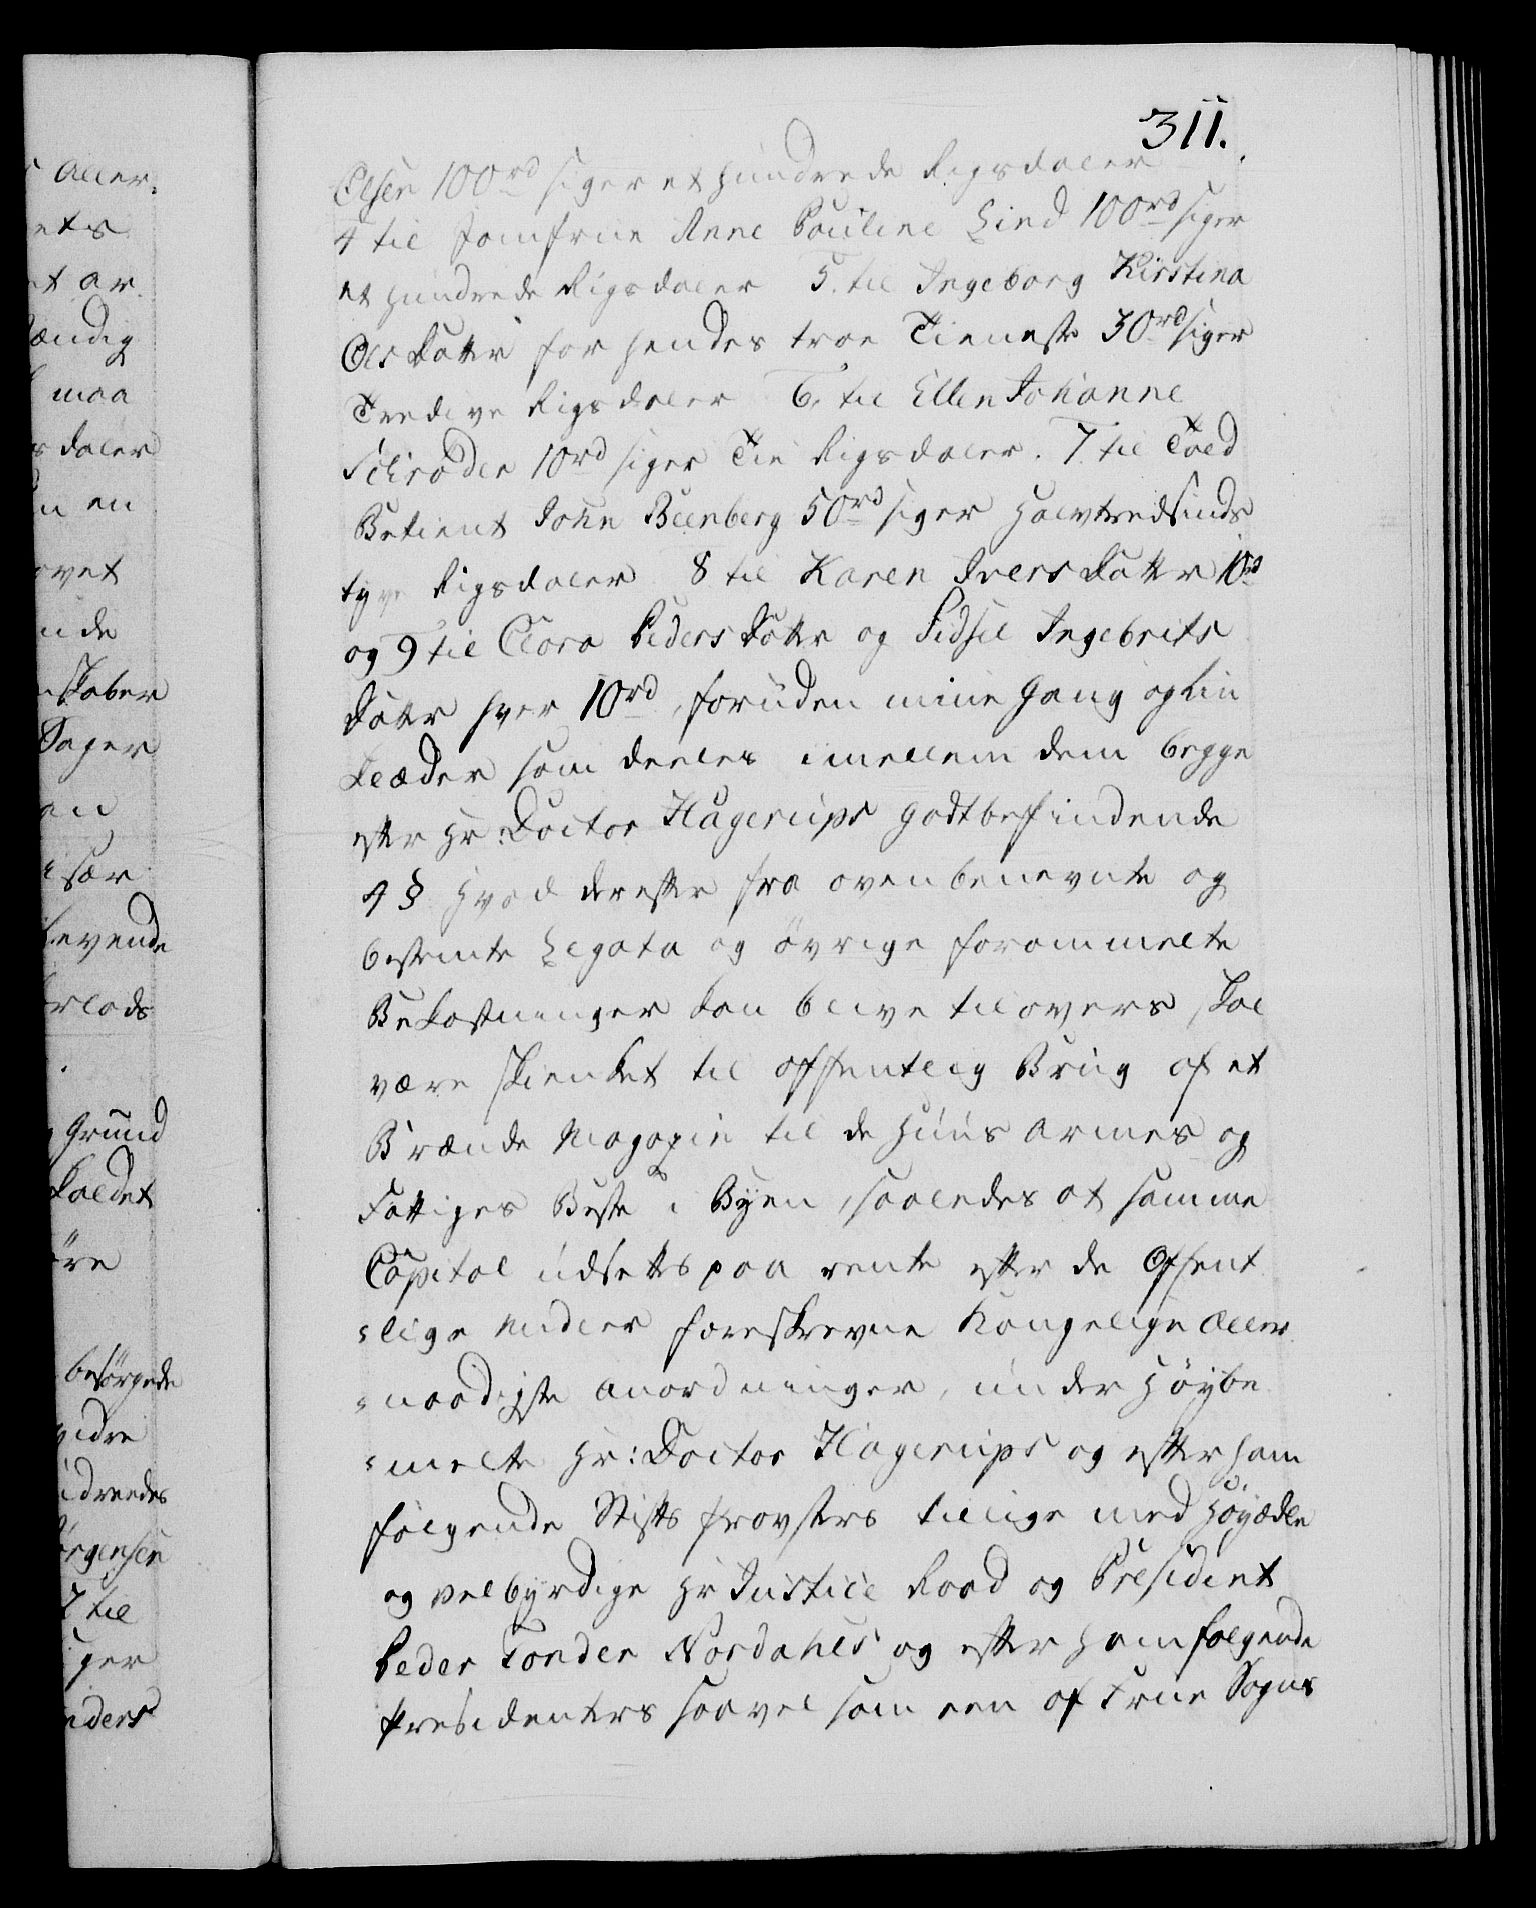 311.
Olsen 100rd siger et hundrede Rigsdaler
4 til Jomfrue Anne Pouline Lind 100rd siger
et hundrede Rigsdaler 5. til Ingeborg Kirstina
Olsdatter for hendes troe Tieneste 30rd siger
Tredive Rigsdaler 6. til Ellen Johanne
Schrøder 10rd siger Tie Rigsdaler. 7. til Told
Betient John Beenberg 50rd siger halvtredsinds
tyve Rigsdaler 8 til Karen Iversdatter 10rd
og 9 til Clara Pedersdatter og Sidsel Ingebrits
datter hver 10rd, foruden mine Gang og Lin
klæder som deeles imellem dem begge
efter Hr: Doctor Hagerups godtbefindende
4 § Hvad derefter fra ovenbenevnte og
bestemte Legata og øvrige forommelte
Bekostninger kan blive tilovers skal
være skienket til offentlig Brug af et
Brænde Magazin til de Huus armes og
Fattiges Beste i Byen, saaledes at samme
Capital udsettes paa rente efter de Offent
=lige Midler foreskrevne Kongelige Aller
=naadigste anordninger, under Høybe
=melte Hr: Doctor Hagerups og efter ham
følgende Stifts Provsters tillige med Høyædle
og velbyrdige Hr Justice Raad og President
Peder Tonder Nordahls og efter ham følgende
Presidenters saavel som een af Frue Sogns
Aller=
ets
et ar
stændig
maa
sdaler
en
ovet
nde
skaber
Sager
an
især
levende
orlods
Grund
kaldet
øre
besørgede
vidre
ørgensen
7 til
siger
nders